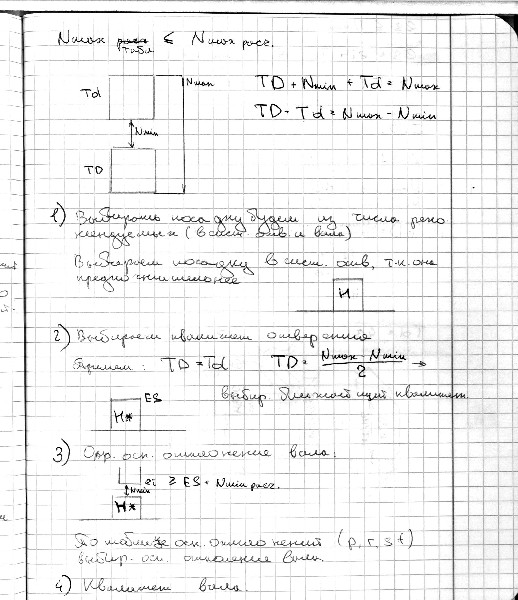 Nmax табл ≤ Nmax расч.
Td
Nmax
TD + Nmin + Td = Nmax
TD + Td = Nmax - Nmin
Nmin
TD
1) Выбирать посадку будем из числа реко
мендуемых (в сист. отв. и вала)
Выбираем посадку в сист. отв, т.к. она
предпочтительнее
H
2) Выбираем квалитет отверстия
TD = Td TD = Nmax - Nmin / 2 →
выбир. ближайший квалитет
ES
H*
3) Опр. осн. отклонение вала:
ei ≥ ES + Nmin расч.
Nmin
H*
По таблице осн. отклонений (p, r, s, t)
выбир. осн. отклонение вала.
4) Квалитет вала